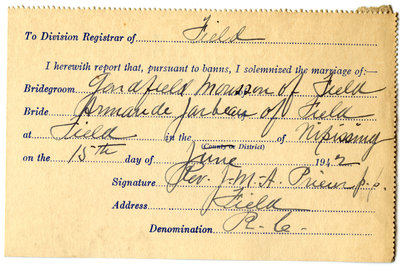 To Division Registrar of Field
I herewith report that, pursuant to banns, I solemnized the marriage of:—
Bridegroom of Field
Bride Armande of Field
at Field in the of Nipissing
(County or District)
on the 15th day of June 1942
Signature Rev. J-M-A. Prieur p.p.
Address Field
Denomination R. C.